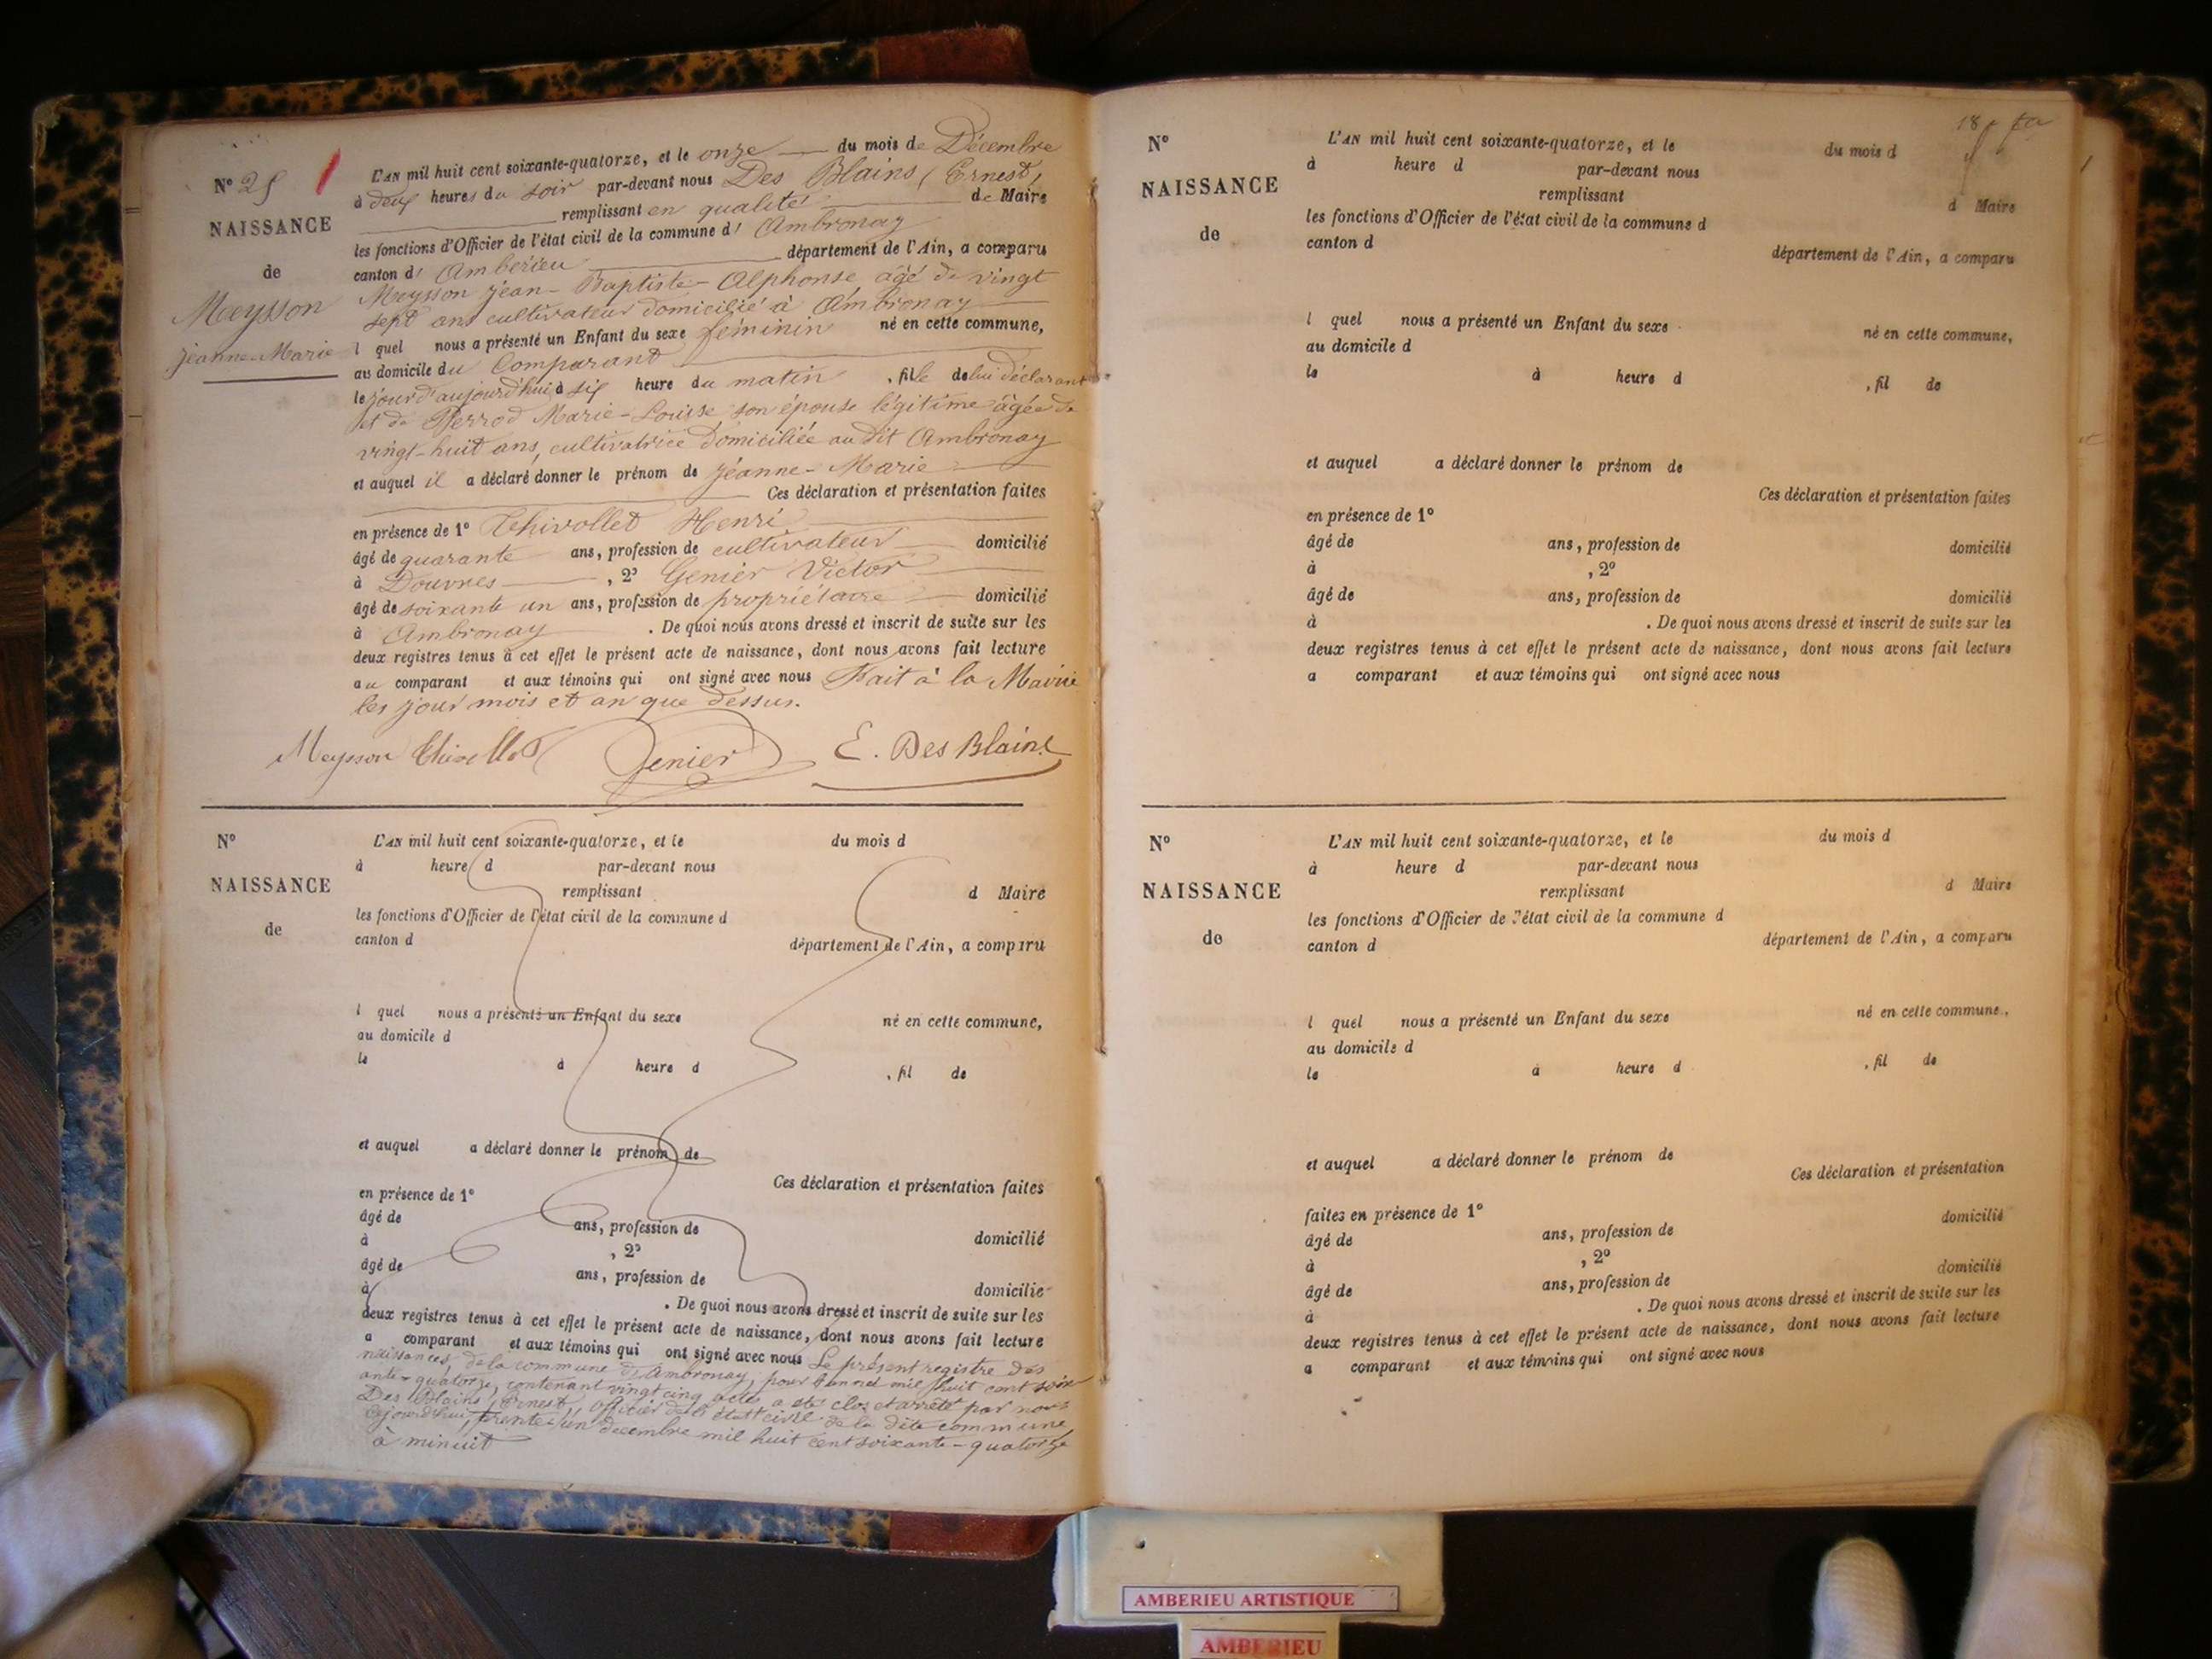 N° 25
NAISSANCE
de
Meysson
Jeanne-Marie
L'AN mil huit cent soixante-quatorze, et le onze du mois de Décembre
à deux heures du soir par-devant nous Des Blains, Ernest,
remplissant en qualité de Maire
les fonctions d'Officier de l'état civil de la commune d' Ambronay
canton d' Ambérieu département de l'Ain, a comparu
Meysson Jean-Baptiste-Alphonse âgé de vingt
sept ans cultivateur domicilié à Ambronay
l quel nous a présenté un Enfant du sexe féminin né en cette commune,
au domicile du Comparant
le jour d'aujourd'hui à six heure du matin , fille de lui déclarant
et de Perrod Marie-Louise son épouse légitime âgée de
vingt-huit ans, cultivatrice domiciliée au dit Ambronay
et auquel il a déclaré donner le prénom de Jeanne-Marie
Ces déclaration et présentation faites
en présence de 1° Thivollet Henri
âgé de quarante ans, profession de cultivateur domicilié
à Douvres , 2° Genier Victor
âgé de soixante un ans, profession de propriétaire domicilié
à Ambronay . De quoi nous avons dressé et inscrit de suite sur les
deux registres tenus à cet effet le présent acte de naissance, dont nous avons fait lecture
au comparant et aux témoins qui ont signé avec nous Fait à la Mairie
les jour mois et an que dessus.
Meysson Thivollet Genier E. Des Blains
N°
NAISSANCE
de
L'AN mil huit cent soixante-quatorze, et le du mois d
à heure d par-devant nous
remplissant d Maire
les fonctions d'Officier de l'état civil de la commune d
canton d département de l'Ain, a comparu
l quel nous a présenté un Enfant du sexe né en cette commune,
au domicile d
le à heure d , fil de
et auquel a déclaré donner le prénom de
Ces déclaration et présentation faites
en présence de 1°
âgé de ans, profession de domicilié
à , 2°
âgé de ans, profession de domicilié
à . De quoi nous avons dressé et inscrit de suite sur les
deux registres tenus à cet effet le présent acte de naissance, dont nous avons fait lecture
a comparant et aux témoins qui ont signé avec nous Le présent registre des
naissances, de la commune d'Ambronay, pour l'année mil huit cent soix
ante-quatorze, contenant vingt cinq actes a été clos et arrêté par nous
Des Blains, Ernest, officier de l'état civil de la dite commune
cejourd'hui, trente-un décembre mil huit cent soixante-quatorze
à minuit
18
N°
NAISSANCE
de
L'AN mil huit cent soixante-quatorze, et le du mois d
à heure d par-devant nous
remplissant d Maire
les fonctions d'Officier de l'état civil de la commune d
canton d département de l'Ain, a comparu
l quel nous a présenté un Enfant du sexe né en cette commune,
au domicile d
le à heure d , fil de
et auquel a déclaré donner le prénom de
Ces déclaration et présentation faites
en présence de 1°
âgé de ans, profession de domicilié
à , 2°
âgé de ans, profession de domicilié
à . De quoi nous avons dressé et inscrit de suite sur les
deux registres tenus à cet effet le présent acte de naissance, dont nous avons fait lecture
a comparant et aux témoins qui ont signé avec nous
N°
NAISSANCE
de
L'AN mil huit cent soixante-quatorze, et le du mois d
à heure d par-devant nous
remplissant d Maire
les fonctions d'Officier de l'état civil de la commune d
canton d département de l'Ain, a comparu
l quel nous a présenté un Enfant du sexe né en cette commune,
au domicile d
le à heure d , fil de
et auquel a déclaré donner le prénom de
Ces déclaration et présentation
faites en présence de 1°
âgé de ans, profession de domicilié
à , 2°
âgé de ans, profession de domicilié
à . De quoi nous avons dressé et inscrit de suite sur les
deux registres tenus à cet effet le présent acte de naissance, dont nous avons fait lecture
a comparant et aux témoins qui ont signé avec nous
AMBERIEU ARTISTIQUE
AMBERIEU